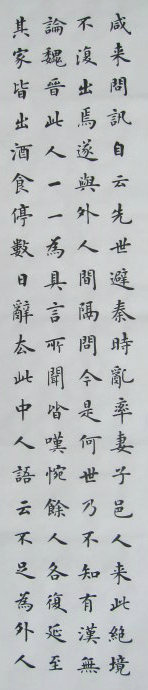 咸来問訊自云先世避秦時亂率妻子邑人来此絕境
不復出焉遂與外人間隔問今是何世乃不知有漢無
論魏晉此人一一為具言所聞皆嘆惋餘人各復延至
其家皆出酒食停數日辭去此中人語云不足為外人